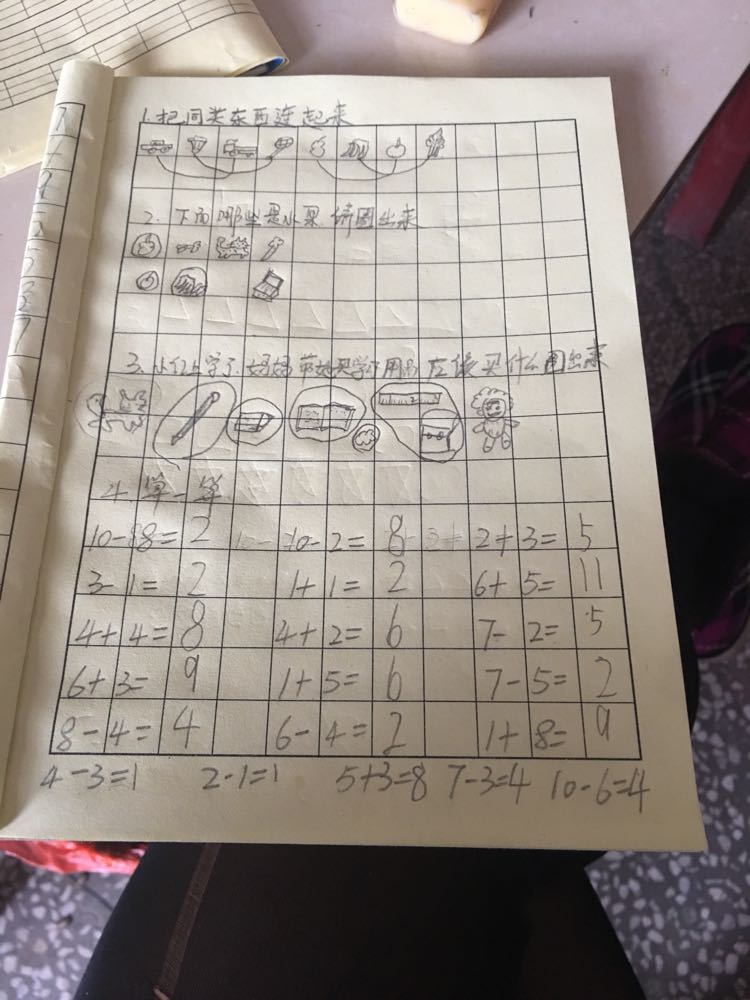 1.把同类东西连起来
2.下面哪些是水果 请圈出来
3.小红上学了.妈妈带她买学习用品应该买什么圈出来
4.算一算
10-8=2 10-2=8 2+3=5
3-1=2 1+1=2 6+5=11
4+4=8 4+2=6 7-2=5
6+3=9 1+5=6 7-5=2
8-4=4 6-4=2 1+8=9
4-3=1 2-1=1 5+3=8 7-3=4 10-6=4